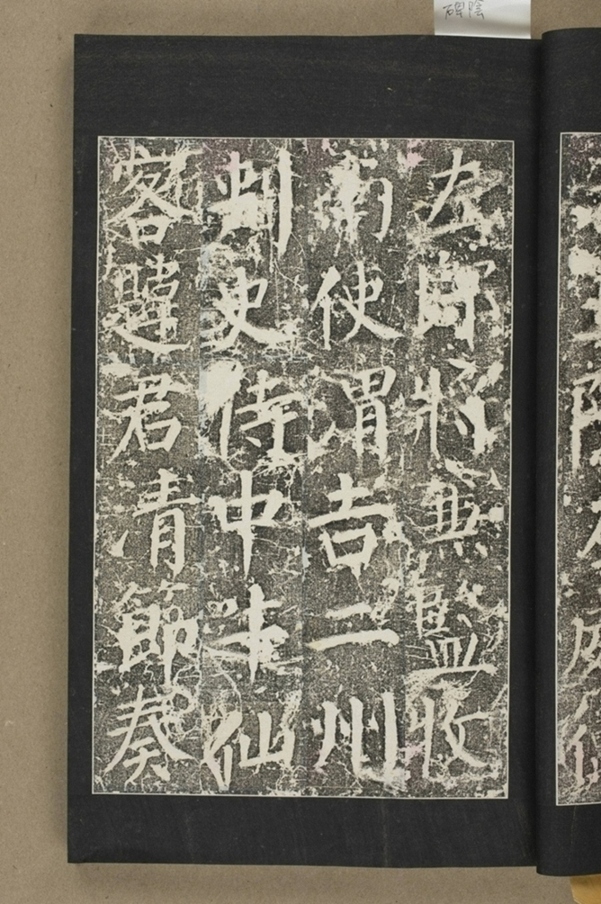 左郎將兼監牧
南使渭吉二州
刺史侍中牛仙
客韙君清節奏